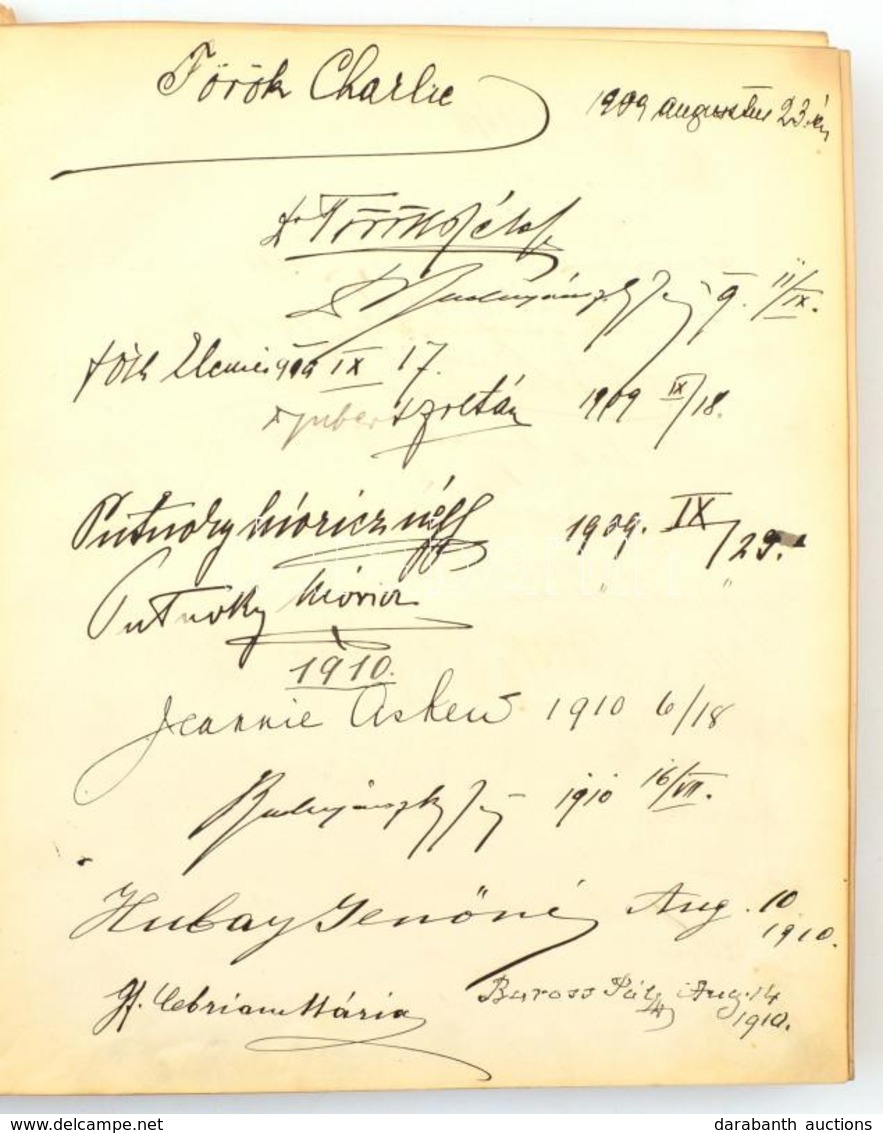 Török Charlie 1909 augusztus 23.án
Dr Török József
9. 11/IX.
Tóth Elemér 909 IX 17.
Zoltán 1909 IX/18.
Putnoky Móriczné 1909. IX/29.
Putnoky Móricz " "
1910.
Jeannie Askew 1910 6/18
1910 16/VII.
Hubay Jenőné Aug. 10 1910.
Gf. Cebrian Mária Baross Pál Aug. 14 1910.
www.delcampe.net
darabanth auctions